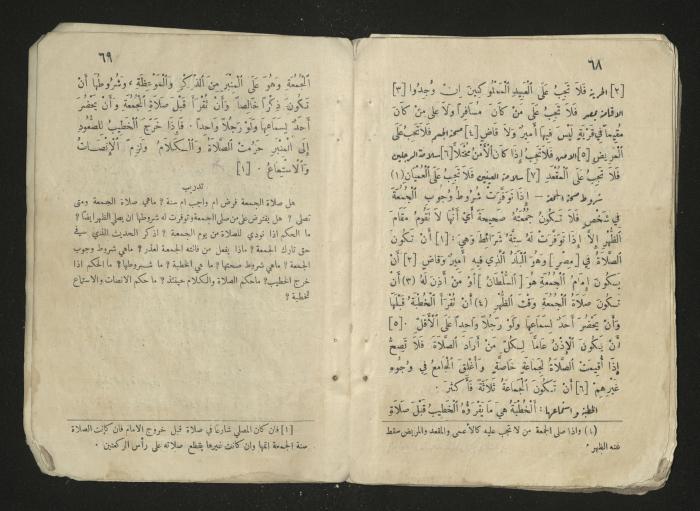 ٦٨
[٢] الحرية فَلَا تَجِبُ عَلَى الْعَبِيدِ الْمَمْلُوكِينَ إِنْ وُجِدُوا [٣]
الاقامة بمصر فَلَا تَجِبُ عَلَى مَنْ كَانَ مُسَافِراً وَلَا عَلَى مَنْ كَانَ
مُقِيماً فِي قَرْيَةٍ لَيْسَ فِيهَا أَمِيرٌ وَلَا قَاضٍ [٤] صحة الجسم فَلَا تَجِبُ عَلَى
الْمَرِيضِ [٥] الامن فَلَا تَجِبُ إِذَا كَانَ الْأَمْنُ مُخْتَلًّا [٦] سلامة الرجلين
فَلَا تَجِبُ عَلَى الْمُقْعَدِ [٧] سلامة العينين فَلَا تَجِبُ عَلَى الْعُمْيَانِ (١)
شروط صحة الجمعة — إِذَا تَوَفَّرَتْ شُرُوطُ وُجُوبِ الْجُمُعَةِ
فِي شَخْصٍ فَلَا تَكُونُ جُمُعَتُهُ صَحِيحَةً أَيْ أَنَّهَا لَا تَقُومُ مَقَامَ
الظُّهْرِ إِلَّا إِذَا تَوَفَّرَتْ لَهُ سِتَّةُ شَرَائِطَ وَهِيَ : [١] أَنْ تَكُونَ
الصَّلَاةُ فِي [مِصْرٍ] وَهُوَ الْبَلَدُ الَّذِي فِيهِ أَمِيرٌ وَقَاضٍ [٢] أَنْ
يَكُونَ إِمَامُ الْجُمُعَةِ هُوَ [السُّلْطَانُ] أَوْ مَنْ أَذِنَ لَهُ (٣) أَنْ
تَكُونَ صَلَاةُ الْجُمُعَةِ وَقْتَ الظُّهْرِ (٤) أَنْ تُقْرَأَ الْخُطْبَةُ قَبْلَهَا
وَأَنْ يَحْضُرَ أَحَدٌ لِسِمَاعِهَا وَلَوْ رَجُلاً وَاحِداً عَلَى الْأَقَلِّ . [٥]
أَنْ يَكُونَ الْإِذْنُ عَامًّا لِكُلِّ مَنْ أَرَادَ الصَّلَاةَ فَلَا تَصِحُّ
إِذَا أُقِيمَتِ الصَّلَاةُ لِجَمَاعَةٍ خَاصَّةٍ وَأُغْلِقَ الْجَامِعُ فِي وُجُوهِ
غَيْرِهِمْ [٦] أَنْ تَكُونَ الْجَمَاعَةُ ثَلَاثَةً فَأَكْثَرَ .
الخطبة واستماعها : الْخُطْبَةُ هِيَ مَا يَقْرَؤُهُ الْخَطِيبُ قَبْلَ صَلَاةِ
(١) واذا صلى الجمعة من لا تجب عليه كالأعمى والمقعد والمريض سقط
عنه الظهر .
٦٩
الْجُمُعَةِ وَهُوَ عَلَى الْمِنْبَرِ مِنَ الذِّكْرِ وَالْمَوْعِظَةِ ، وَشُرُوطُهَا أَنْ
تَكُونَ ذِكْراً خَالِصاً وَأَنْ تُقْرَأَ قَبْلَ صَلَاةِ الْجُمُعَةِ وَأَنْ يَحْضُرَ
أَحَدٌ لِسِمَاعِهَا وَلَوْ رَجُلاً وَاحِداً . فَإِذَا خَرَجَ الْخَطِيبُ لِلصُّعُودِ
إِلَى الْمِنْبَرِ حَرُمَتِ الصَّلَاةُ وَالْكَلَامُ وَلَزِمَ الْإِنْصَاتُ
وَالِاسْتِمَاعُ . [١]
تدريب
هل صلاة الجمعة فرض ام واجب ام سنة ؟ ماهي صلاة الجمعة ومتى
تصلى ؟ هل يفترض على من صلى الجمعة وتوفرت له شروطها ان يصلي الظهر ايضا ؟
ما الحكم اذا نودي للصلاة من يوم الجمعة ؟ اذكر الحديث الذي سيق في
حق تارك الجمعة ؟ ماذا يفعل من فاتته الجمعة لعذر ؟ ماهي شروط وجوب
الجمعة ؟ ماهي شروط صحتها ؟ ما هي الخطبة ؟ ما شروطها ؟ ما الحكم اذا
خرج الخطيب ؟ ماحكم الصلاة والكلام حينئذ ؟ ما حكم الانصات والاستماع
للخطبة ؟
[١] فان كان المصلي شارعا في صلاة قبل خروج الامام فان كانت الصلاة
سنة الجمعة اتمها وان كانت غيرها يقطع صلاته على رأس الركعتين .